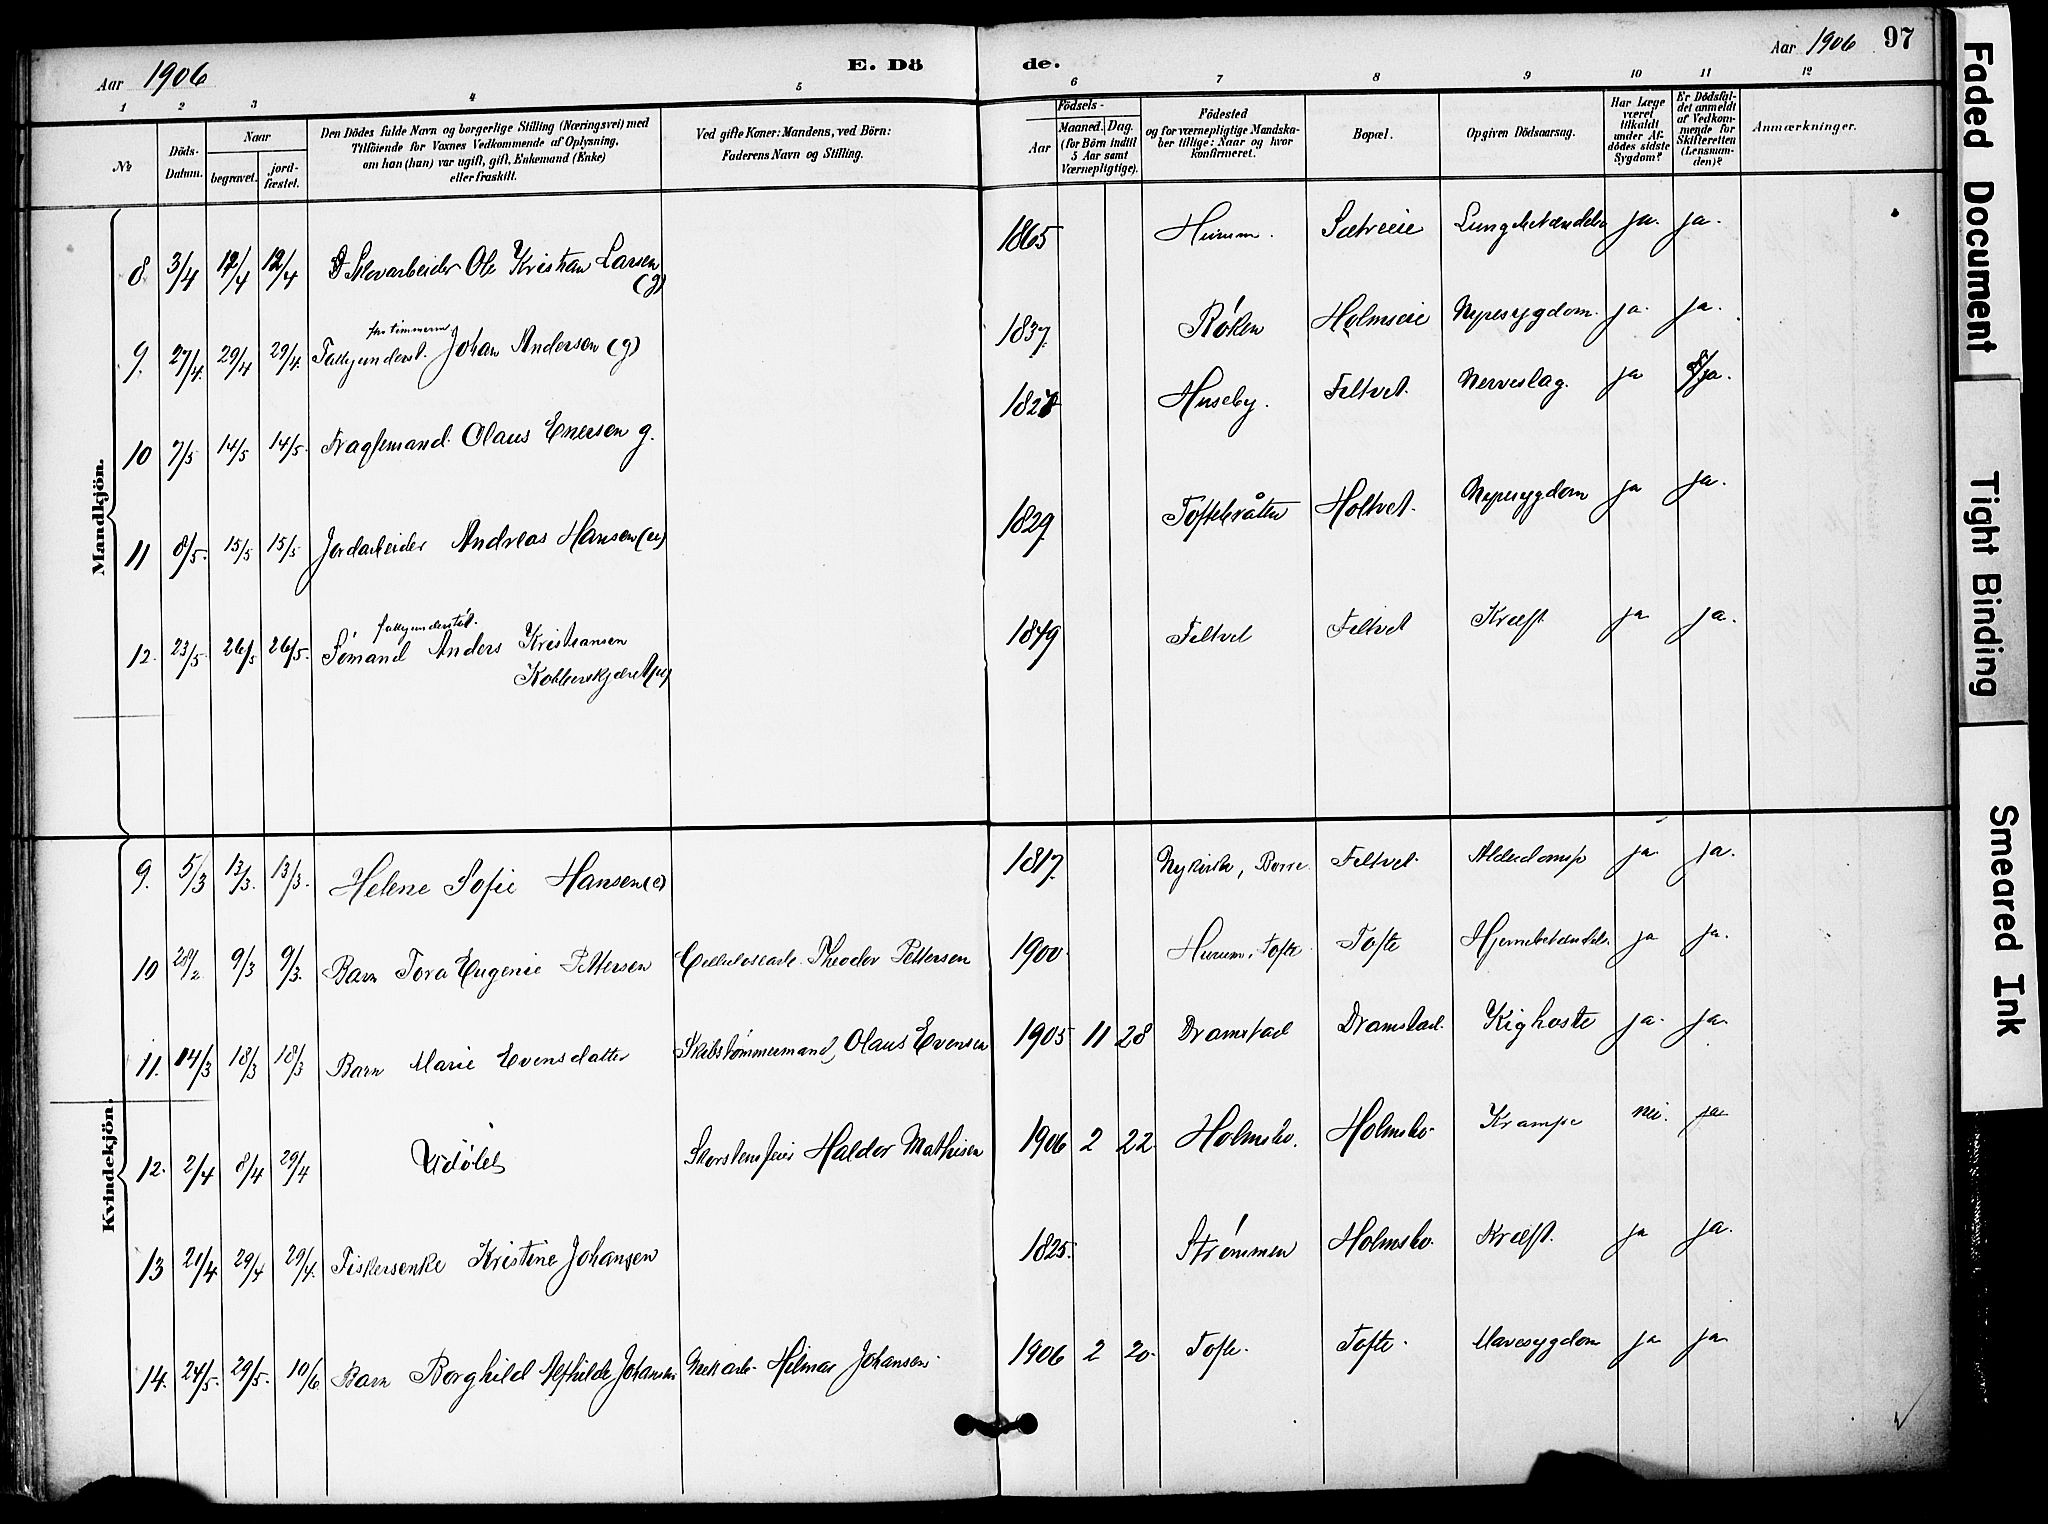 Aar 1906
E. Dö de.
Aar 1906 97
1 2 3 4 5 6 7 8 9 10 11 12
No
Döds-Datum.
Naar
begravet.
jord-fæstet.
Den Dödes fulde Navn og borgerlige Stilling (Næringsvei) med
Tilföiende for Voxnes Vedkommende af Oplysning,
om han (hun) var ugift, gift, Enkemand (Enke)
eller fraskilt.
Ved gifte Koner: Mandens, ved Börn:
Faderens Navn og Stilling.
Födsels-
Aar
Maaned. Dag.
(for Börn indtil
5 Aar samt
Værnepligtige).
Födested
og for værnepligtige Mandska-
ber tillige: Naar og hvor
konfirmeret.
Bopæl.
Opgiven Dödsaarsag.
Har Læge
været
tilkaldt
under Af-
dödes sidste
Sygdom?
Er Dödsfal-
det anmeldt
af Vedkom-
mende for
Skifteretten
(Lensman-
den)?
Anmærkninger.
Mandkjön.
8 3/4 12/4 12/4 Skovarbeider Ole Kristian Larsen (g) 1865 Hurum. Sætreeie Lungebetændelse ja. ja.
9. 27/4. 29/4 29/4. Johan Andersen (g) 1837. Røken Holmseie Nyresygdom. ja. ja.
10 7/5 14/5 14/5. Olaus Enersen g. Huseby. Feltvet. Nerveslag. ja ja.
11 8/5. 15/5 15/5 Jordarbeider Andreas Hansen 1829 Toftebråten Holtvet. Nyresygdom ja ja.
fattigunderstøt.
12. 23/5. 26/5 26/5. Sømand Anders Kristiansen 1849 Feltvet Feltvet Kræft ja ja.
Kvindekjön.
9. 5/3 13/3. 13/3. Helene Sofie Hansen (e) 1817. Nykirke, Borre. Feltvet. Alderdomss ja ja.
10 9/3 9/3. Barn Tora Eugenie Pettersen Cellulosearb. Theodor Pettersen 1900. Hurum, Tofte Tofte Hjernebetændels. ja ja.
11. 14/3 18/3 18/3 Barn Marie Evensdatter Skibstømmermand Olaus Evensen 1905 11 28 Dramstad Dramstad. Kighoste ja. ja.
12. 2/4 8/4 29/4 Udøbt Skorstensfeier Haldor Mathisen 1906 2 22 Holmsbo. Holmsbo. Krampe nei. ja
13 21/4. 29/4 29/4. Fiskersenke Kristine Johansen 1825. Strømmen Holmsbo. Kræft. ja ja.
14. 24/5. 29/5. 10/6 Barn Borghild Alfhilde Johansen Hilmar Johansen 1906 2 20. Tofte. Tofte. Mavesygdom ja ja
Faded Document
Tight Binding
Smeared Ink